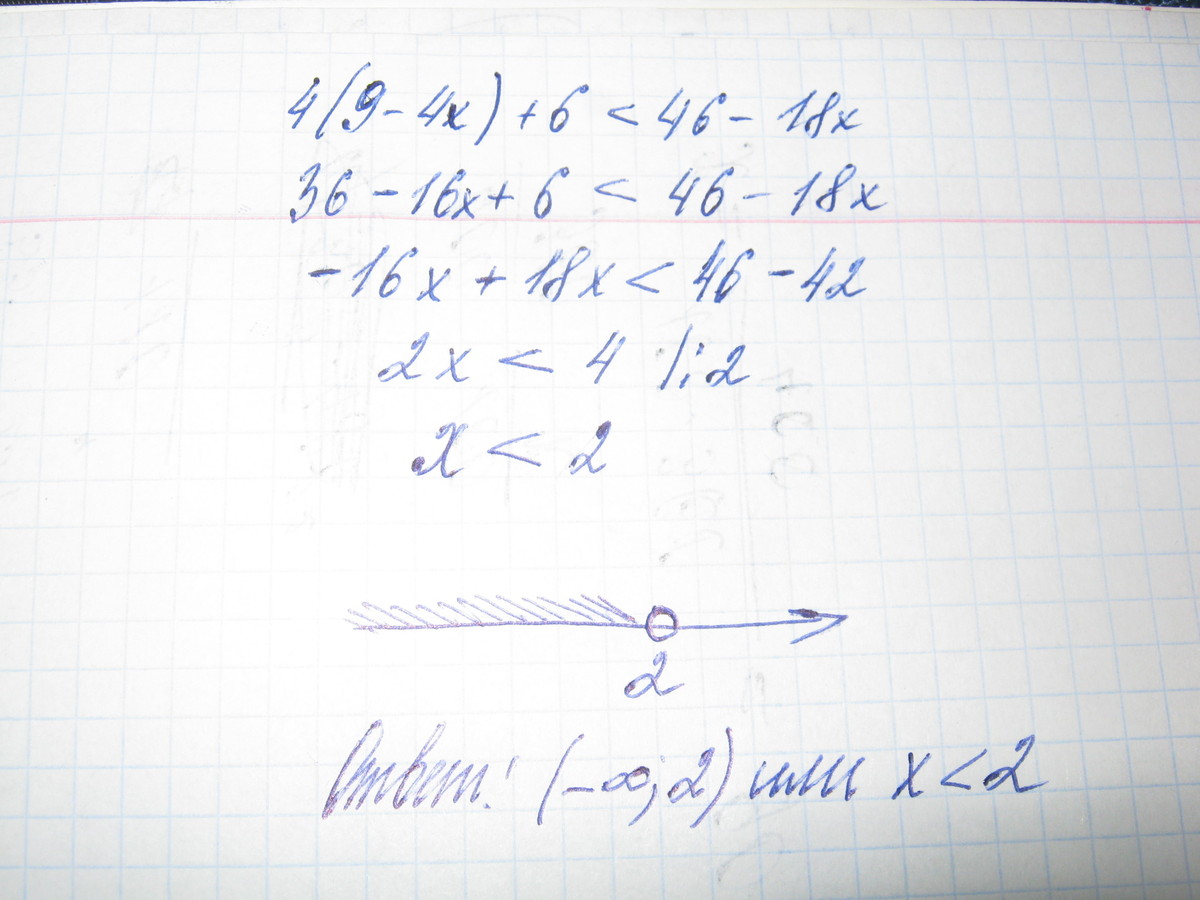 4(9-4x)+6 < 46-18x
36-16x+6 < 46-18x
-16x+18x < 46-42
2x < 4 |:2
x < 2
2
Ответ: (-∞;2) или x<2